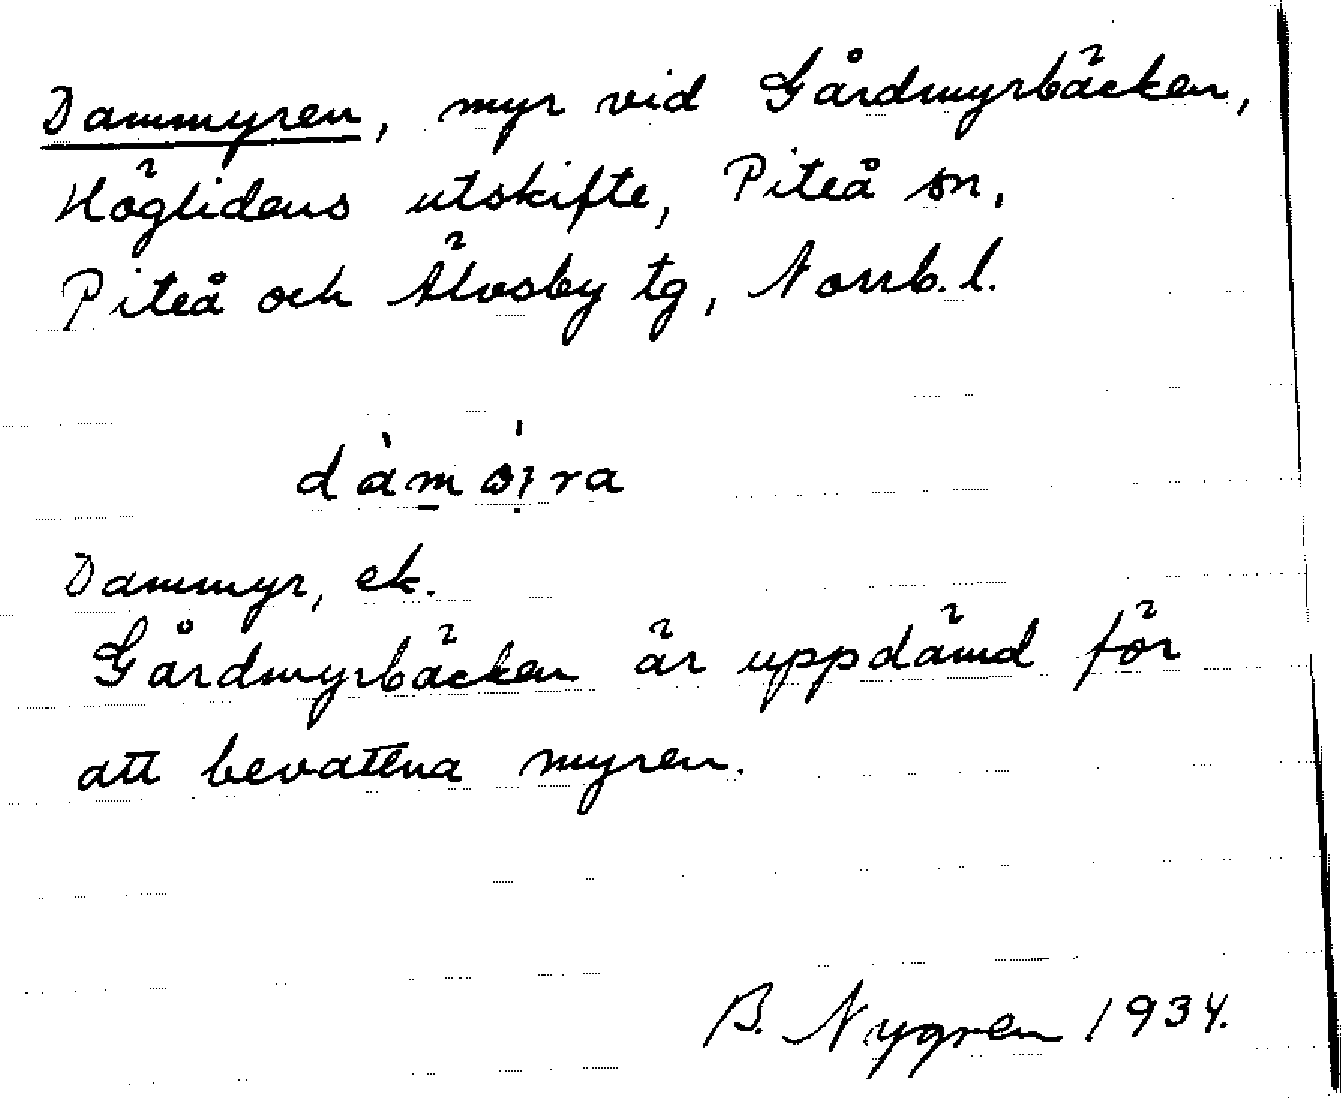 Dammyren, myr vid Gårdmyrbäcken,
Höglidens utskifte, Piteå sn,
Piteå och Älvsby tg, Norrb. l.
Dammyr, ek.
Gårdmyrbäcken är uppdämd för
att bevattna myren.
B. Nygren 1934.